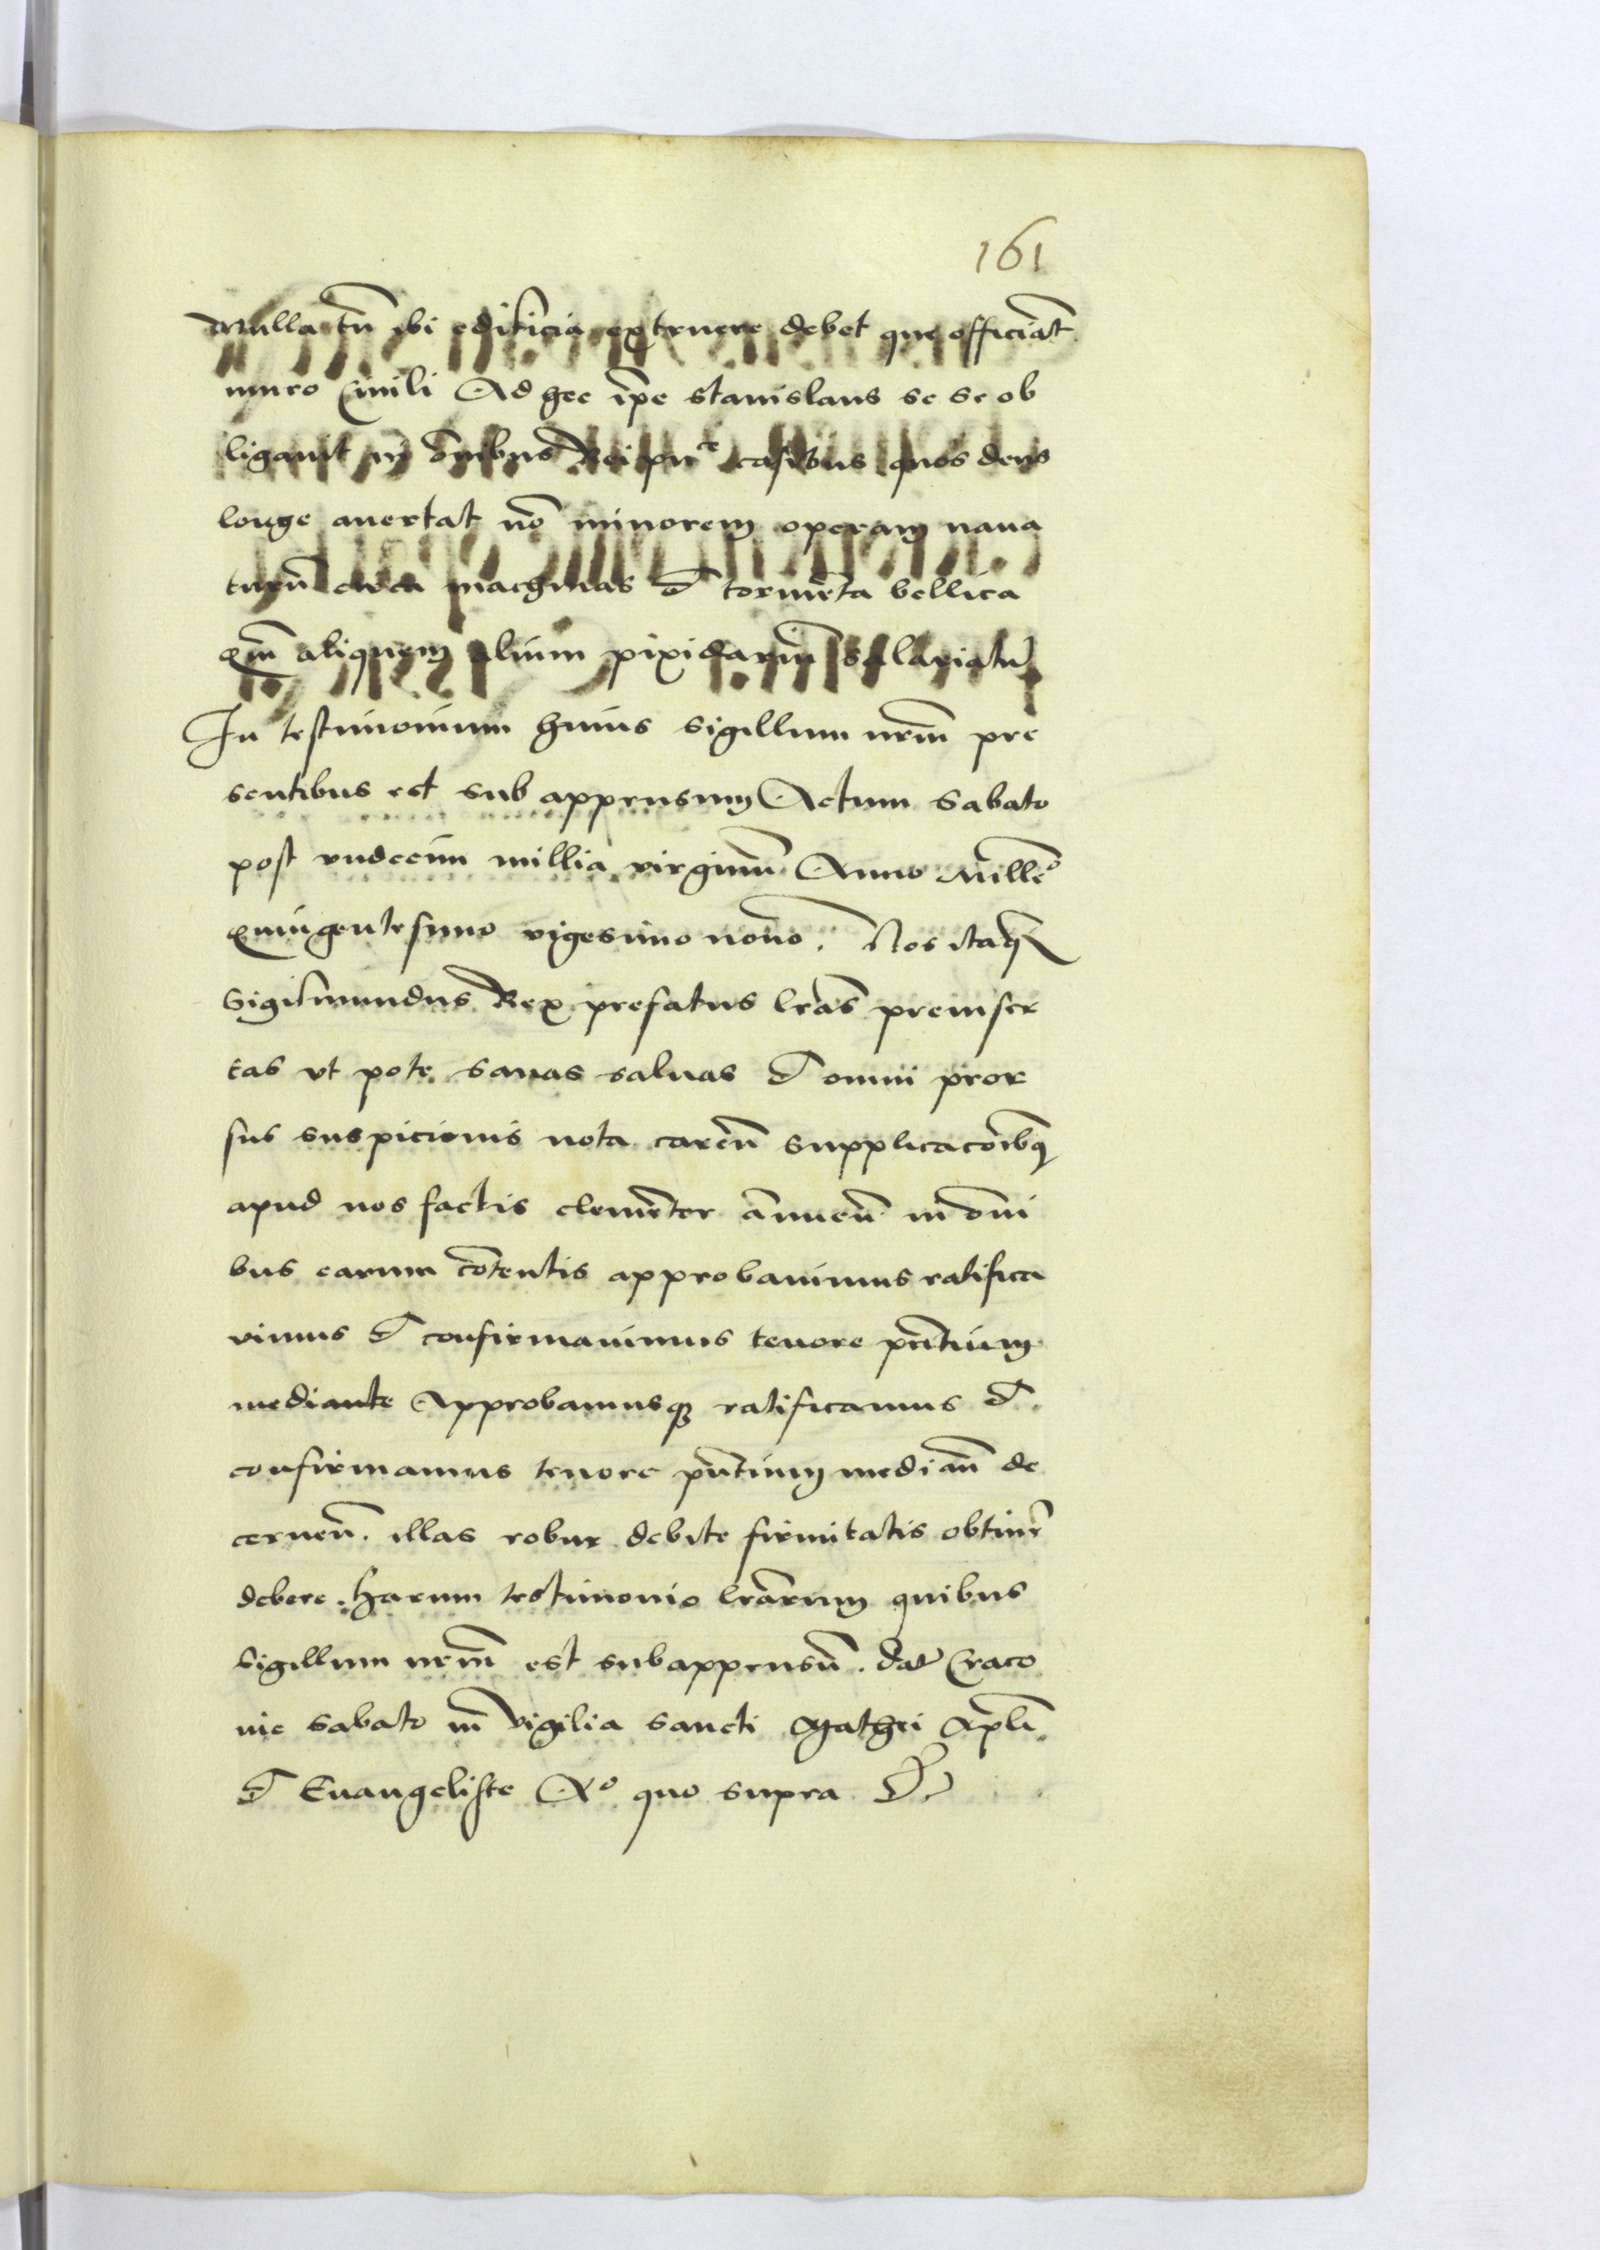 161
Nulla tn̄ ibi edificia extruere debet que officiāt
muro Ciuili Ad hec ip̄e Stanislaus se se ob
ligauit in om̄ibus Rei pu^ce casibus quos deus
longe auertat nō minorem operam naua
turū circa machinas et tormēta bellica
qm̄ aliquem alium pixidariū salariatū
In testimonium huius Sigillum nr̄m pre
sentibus est sub appensum Actum Sabato
post vndecim millia virginū Anno Mill̄e^o
Quingentesimo vigesimo nono. Nos itaq3
Sigismundus Rex prefatus lr̄as preinser
tas vt pote sanas saluas et omni pror
sus suspicionis nota carēn supplicac̄oibq3
apud nos factis clemēter ānuēn in om̄i
bus earum cōtentis approbauimus ratifica
vimus et confirmauimus tenore pn̄tium
mediante Approbamusq3 ratificamus et
confirmamus tenore pn̄tium mediān de
cernēn. illas robur debite firmitatis obtinēr
debere. Harum testimonio lr̄arum quibus
Sigillum nr̄m est subappensū. Dat Craco
nie Sabato in Vigilia sancti Mathei Apl̄i
et Euangeliste A^o quo supra